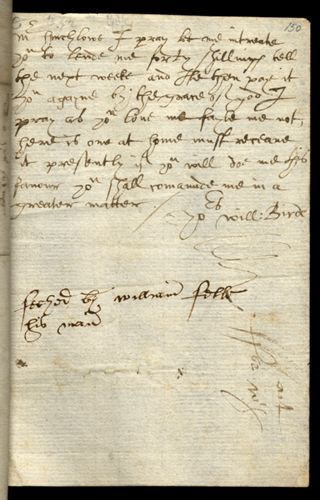 150
mr hinchlowe I pray let me intreate
yow to lende me forty shillings tell
the next weeke and Ile then pay it
yow againe by the grace of god I
pray as yow love me faile me not,
here is one at home must receave
it presently if yow will doe me this
favour yow shall comaunde me in a
greater matter
yors will: Birde
fetched by william felle
his man